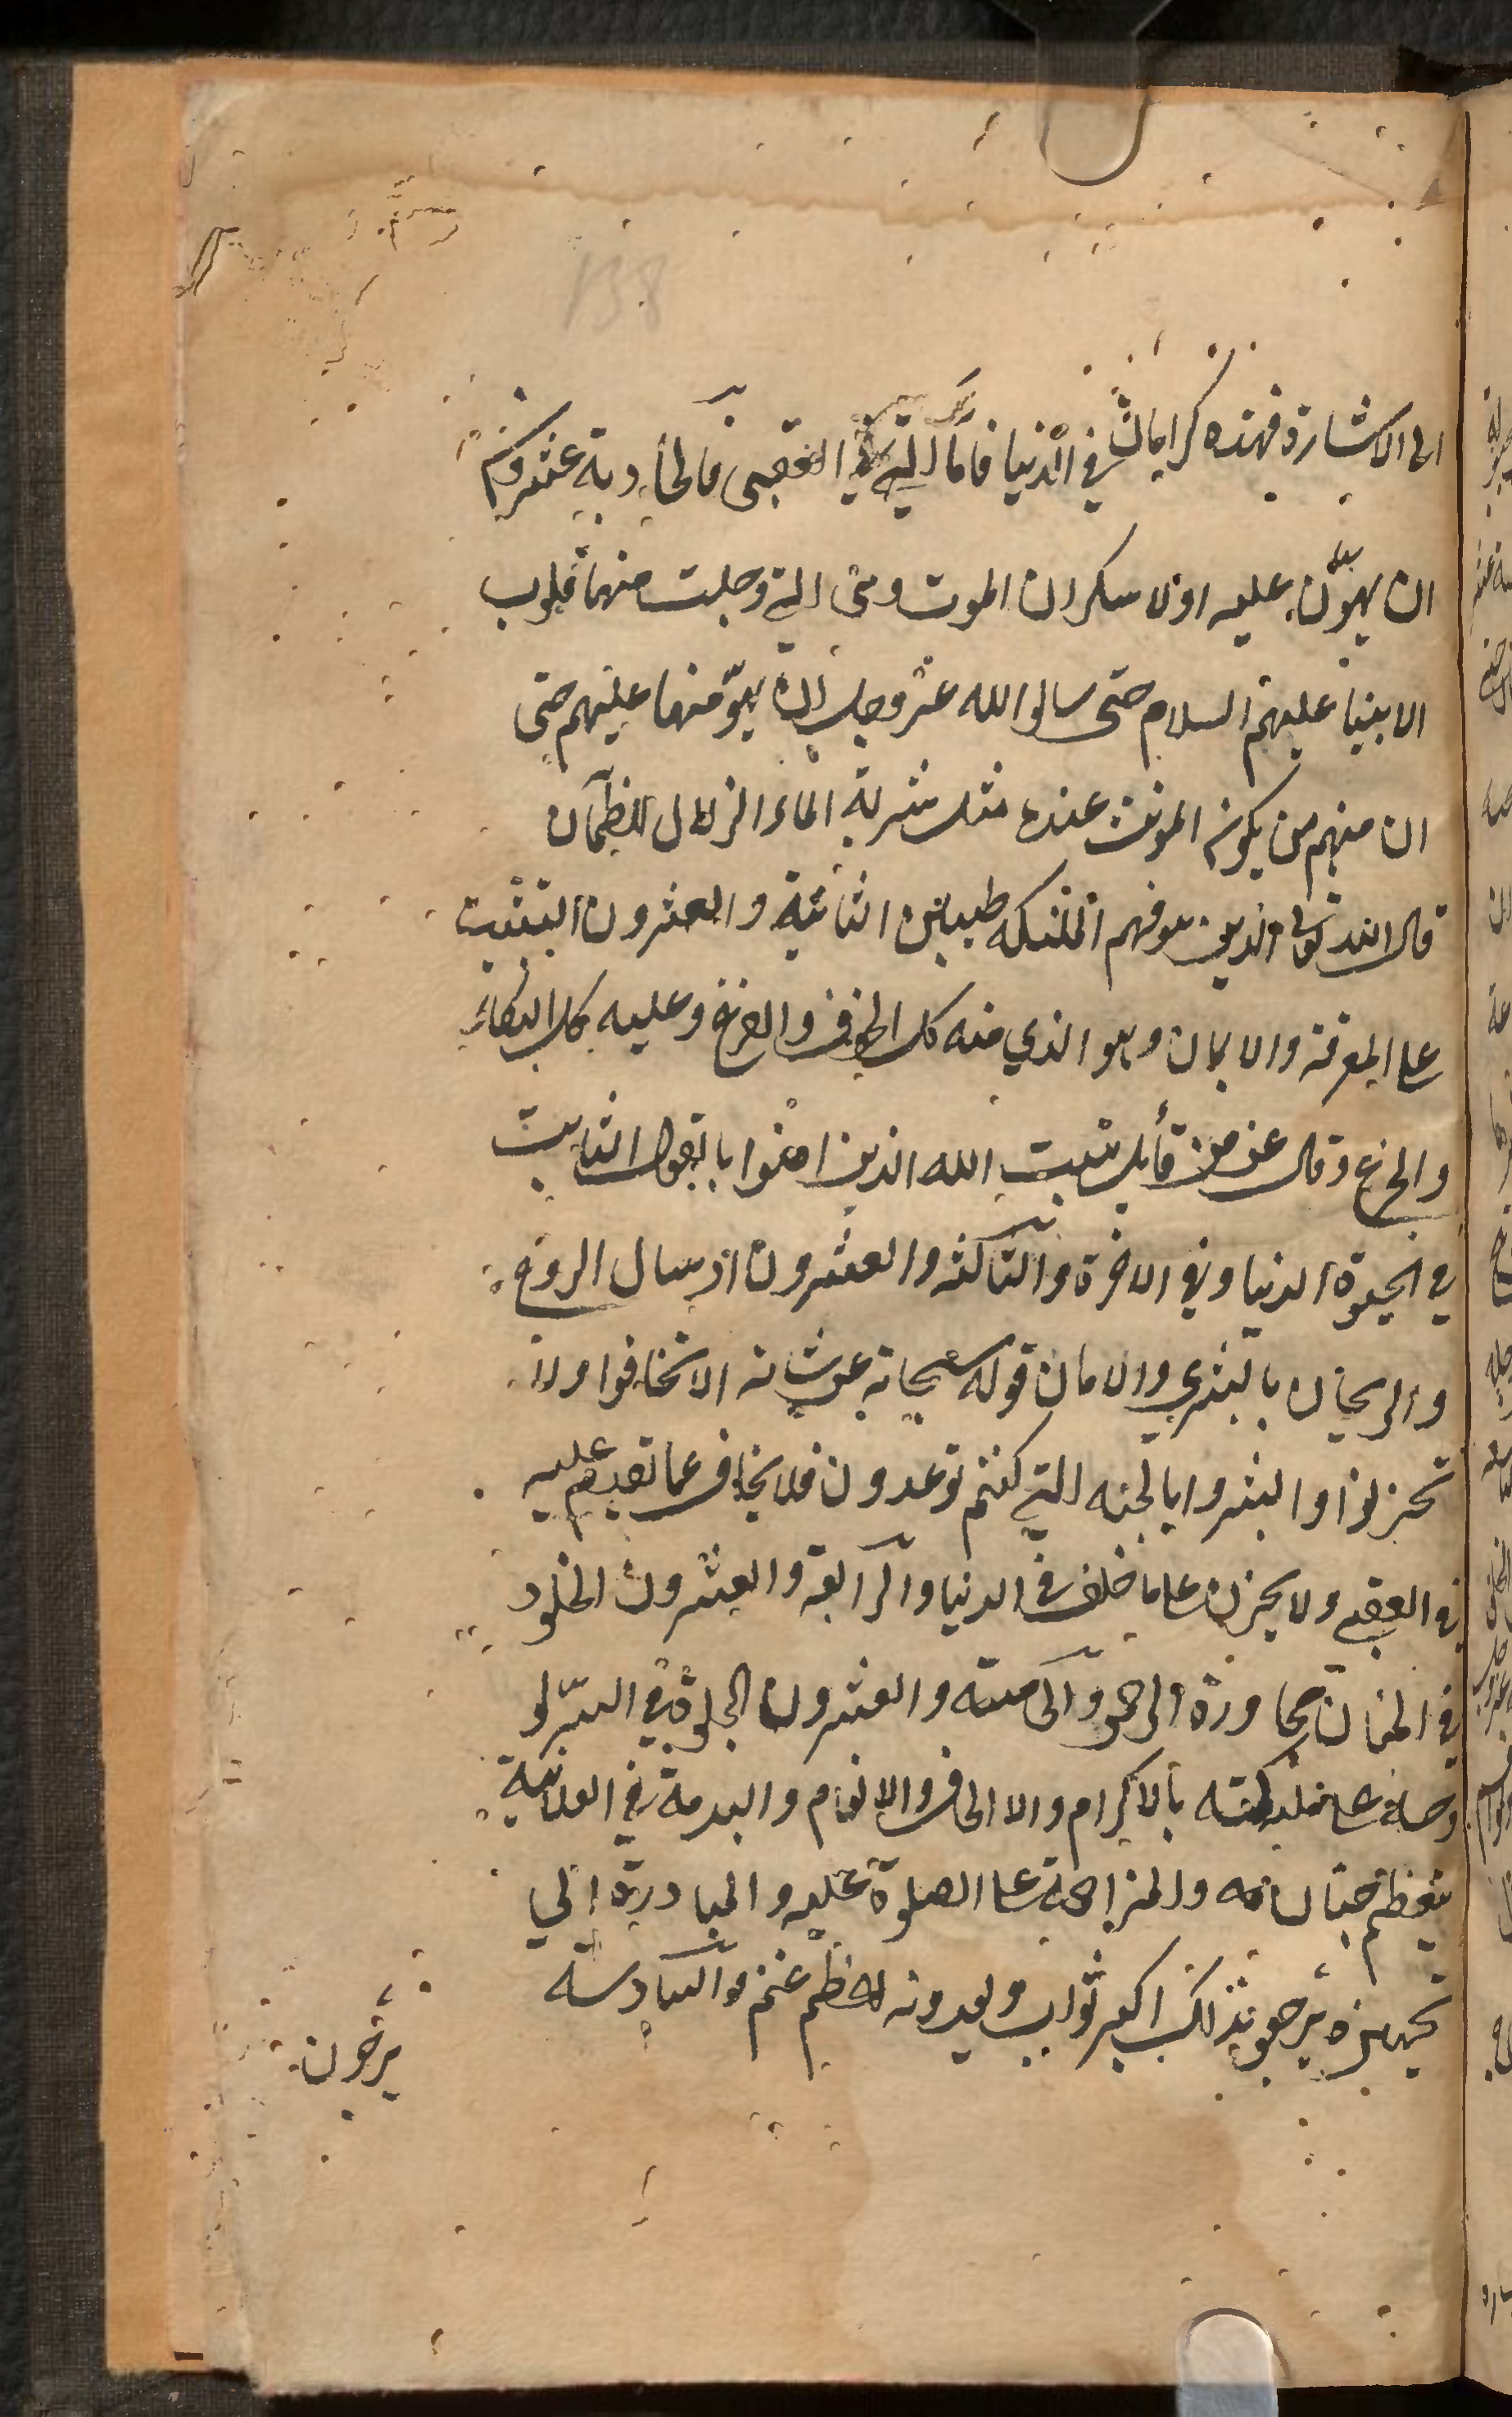 138
الى الاشارة فهذه كرامات في الدنيا فاما التي في العقبى فالحادية عشرون
ان يهون عليه اولا سكران الموت وهى التي وجلت منها قلوب
الانبيا عليهم السلام حتى سالوا الله عز وجل ان يهو منها عليهم حتى
ان منهم من يكون الموت عنده مثل شربة الماء الزلال للظمان
قال الله تعالى الذين تتوفهم الملئكه طيبين الثانية والعشرون التثبيت
على المعرفة والايمان وهو الذي منه كل الخوف والفزع وعليه كل البكاء
والجزع وقال عز من قايل يثبت الله الذين امنوا بالقول الثابت
في الحيوة الدنيا وفي الاخرة والثالثه والعشرون ارسال الروح
والريحان بالبشري والامان قوله سبحانه عز شانه الا تخافوا ولا
تحزنوا وابشروا بالجنه التي كنتم توعدون فلا يخاف عما تقدم عليه
في العقبى ولا يحزن على ما خلف في الدنيا والرابعة والعشرون الخلود
في الجنان مجاورة الرحمن والخامسة والعشرون الجلوة في السر لو
وحه على ملئكته بالاكرام والالطاف والانعام والبدمة في العلانية
بتعظيم جنازته والمزاحمة على الصلوة عليه والمبادرة الي
تجهيزه يرجون بذلك اكبر ثواب ويعدونه اعظم غنم والسادسة
يرجون